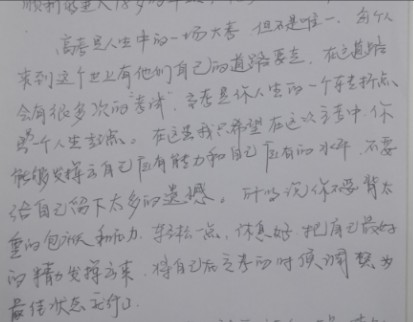 高考是人生中的一场大考 但不是唯一，每个人
来到这个世上有他们自己的道路要走，在这道路
会有很多次的"考试"，高考是你人生的一个转折点
另一个人生起点。在这里我只希望在这次高考中，你
能够发挥出自己应有能力和自己应有的水平，不要
给自己留下太多的遗憾。所以说你不要背太
重的包袱和压力，轻松一点，休息好，把自己最好
的精力发挥出来，将自己在高考的时候调整为
最佳状态